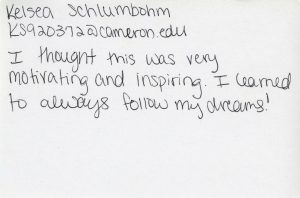 Kelsea Schlumbohm
KS920372@cameron.edu
I thought this was very
motivating and inspiring. I learned
to always follow my dreams!